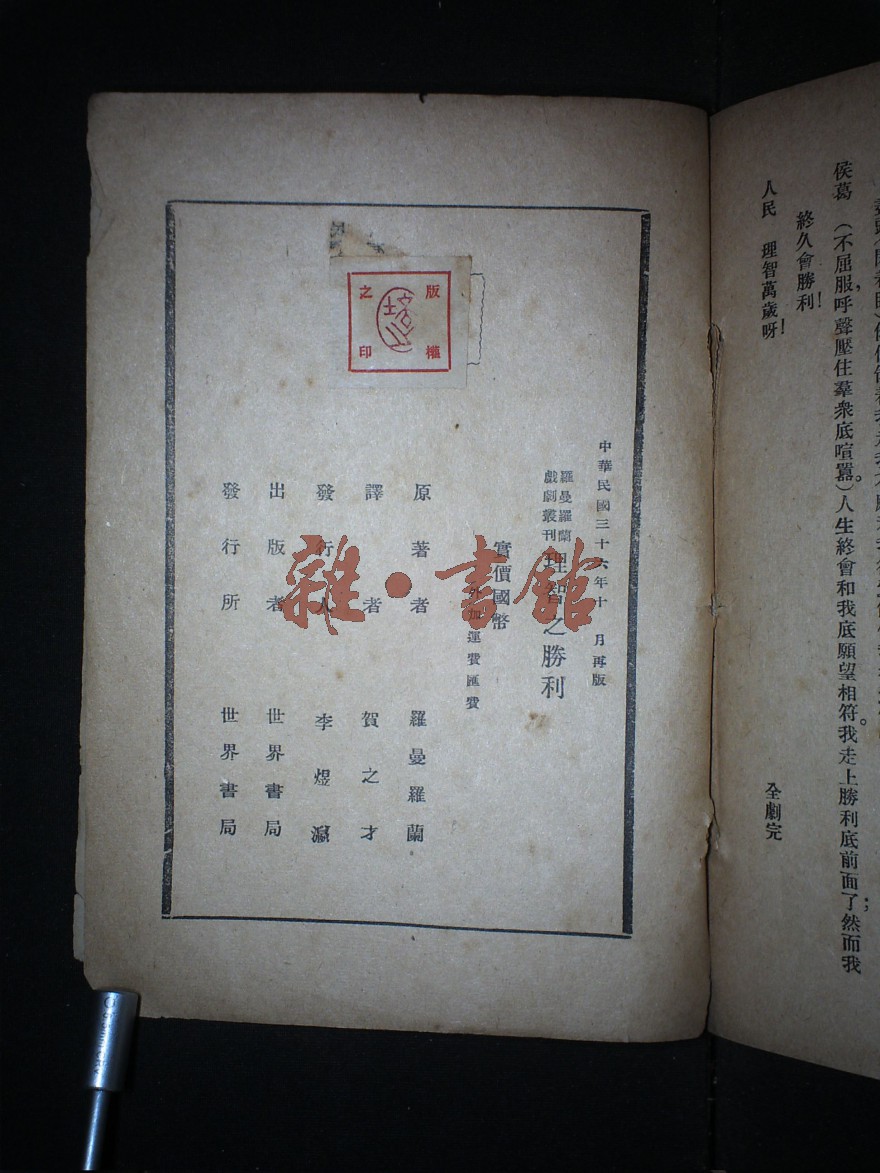 侯葛　(不屈服，呼聲壓住羣衆底喧囂)人生終會和我底願望相符。我走上勝利底前面了；然而我
終久會勝利！
人民　理智萬歲呀！
全劇完
版權
之印
中華民國三十六年十月再版
羅曼羅蘭
戲劇叢刊
理智之勝利
實價國幣
外加運費匯費
原著者　羅曼羅蘭
譯者　賀之才
發行人　李煜瀛
出版者　世界書局
發行所　世界書局
雜·書館